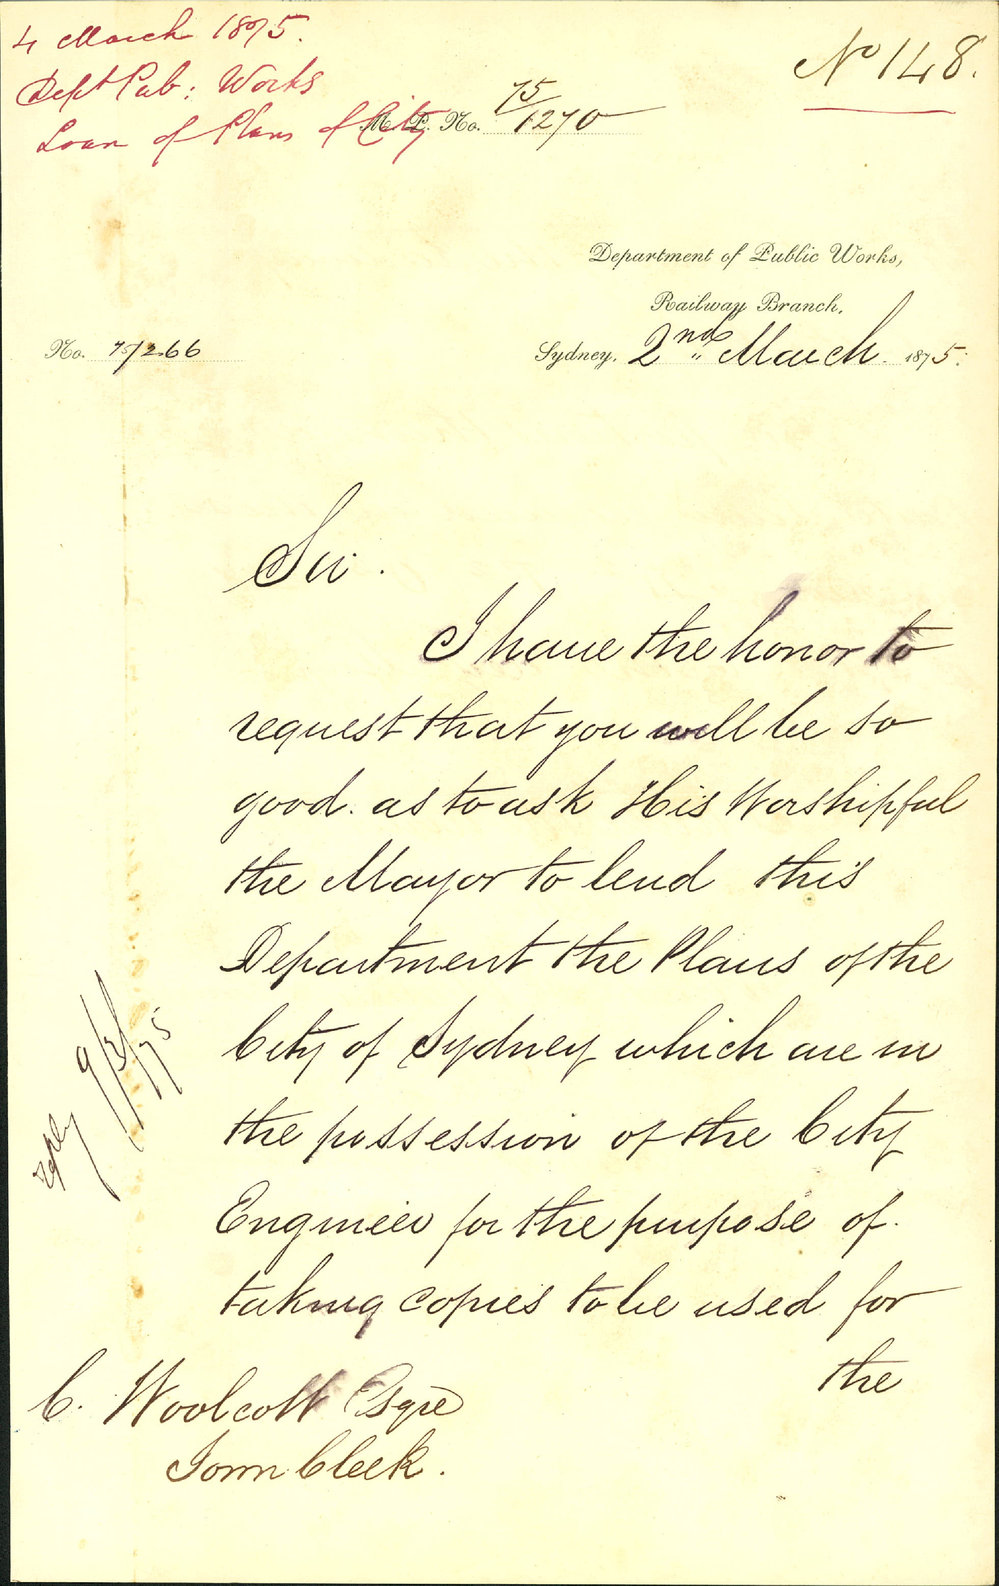 4 March 1875.
Dept Pub: Works
Loan of Plans of City
No 148.
M. P. No. 75/1270
Department of Public Works,
Railway Branch,
No. 75/266
Sydney, 2nd March 1875.
Sir.
I have the honor to
request that you will be so
good. as to ask His Worshipful
the Mayor to lend this
Department the Plans of the
City of Sydney which are in
the possession of the City
Engineer for the purpose of.
taking copies to be used for
the
C. Woolcott Esqre
Town Clerk.
reply 9/3/75